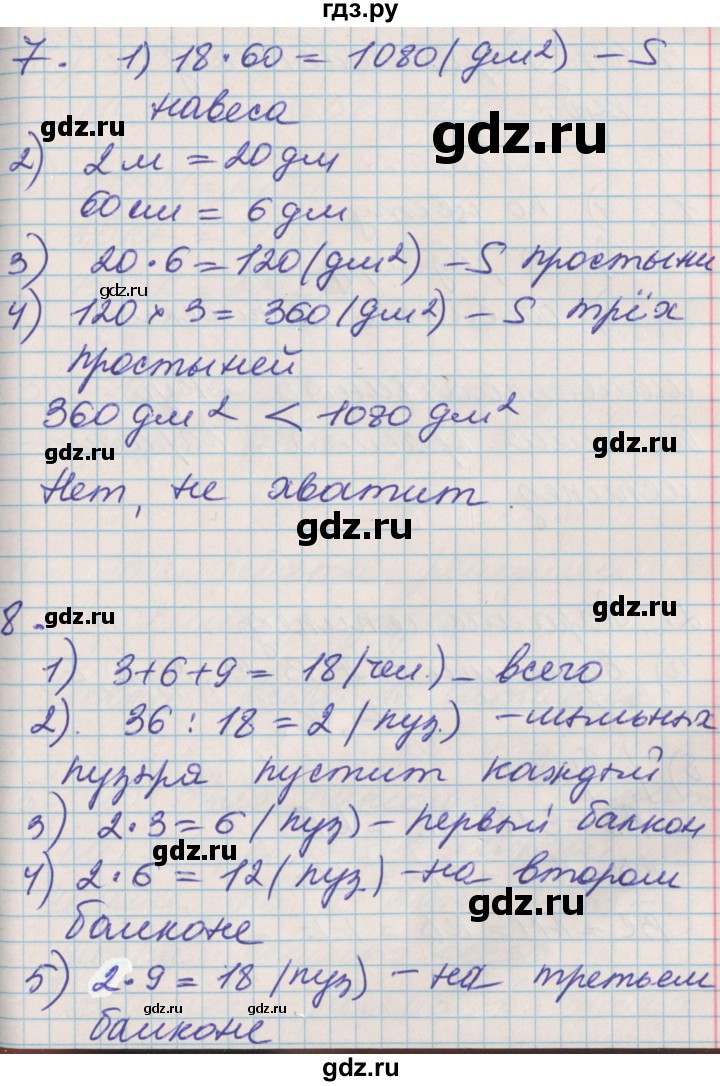 гдз.ру
7. 1) 18·60 = 1080 (дм2) – S
навеса
gdz.ru
gdz.ru
2) 2 м = 20 дм
60 см = 6 дм
3) 20·6 = 120 (дм2) – S простыни
gdz.ru
gdz.ru
4) 120 × 3 = 360 (дм2) – S трёх
простыней
360 дм2 < 1080 дм2
gdz.ru
gdz.ru
Нет, не хватит.
gdz.ru
8.
gdz.ru
gdz.ru
1) 3+6+9 = 18 (чел.) – всего
2). 36 : 18 = 2 (пуз.) – мыльных
gdz.ru
пузыря пустит каждый
3) 2·3 = 6 (пуз) – первый балкон
gdz.ru
4) 2·6 = 12 (пуз.) – на втором
gdz.ru
балконе
5) 2·9 = 18 (пуз) – на третьем
gdz.ru
gdz.ru
балконе
gdz.ru